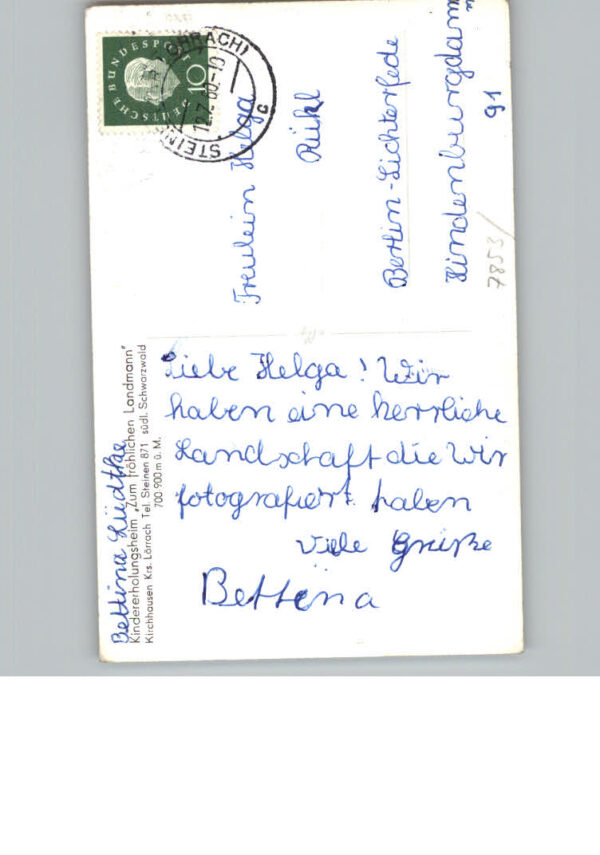 DEUTSCHE BUNDESPOST
10
12.7.60.-10
c
Fräulein Helga
Rühl
Berlin-Lichterfede
Hindenburgdamm
91
7853/
Bettina Lüdtke
Kindererholungsheim „Zum fröhlichen Landmann"
Kirchhausen Krs. Lörrach Tel. Steinen 871 südl. Schwarzwald
700 900 m ü. M.
Liebe Helga! Wir
haben eine herrliche
Landschaft die Wir
fotografiert haben
Viele Grüße
Bettina